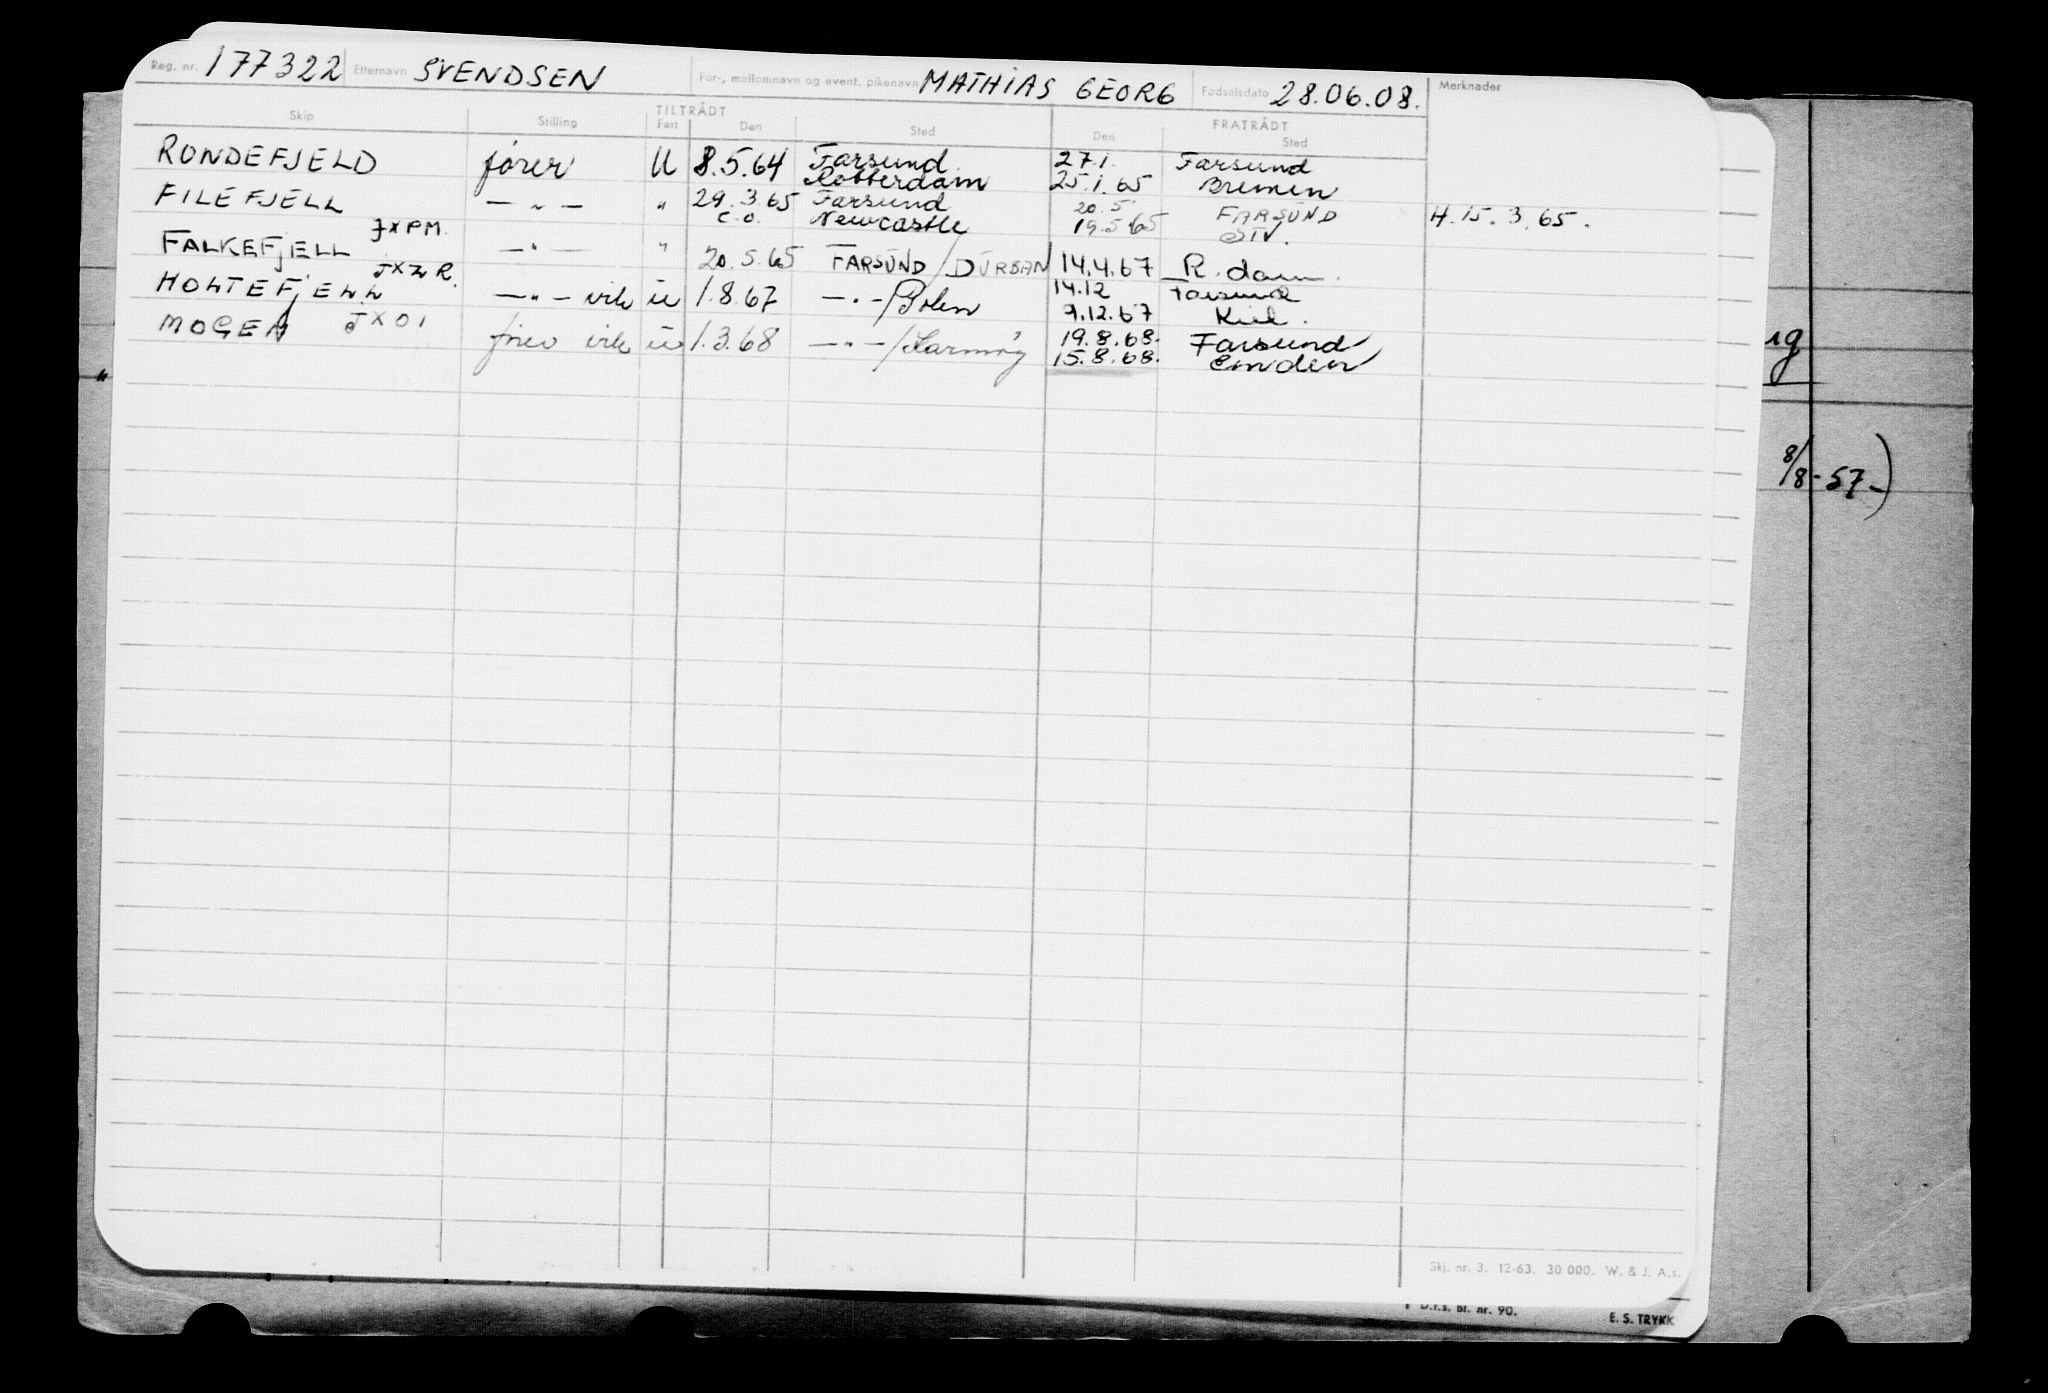 Reg. nr. 177322 Etternavn SVENDSEN For-, mellomnavn og event. pikenavn MATHIAS GEORG Fødselsdato 28.06.08. Merknader
TILTRÅDT FRATRÅDT
Skip Stilling Fart Den Sted Den Sted
RONDEFJELD fører U 8.5.64 Farsund 27.1. Farsund
Rotterdam 25.1.65 Bremen
FILEFJELL — " — " 29.3.65 Farsund 20.5 FARSUND H. 15.3.65.
JXPM. C.O. Newcastle 19.5.65 STV.
FALKEFJELL — " — " 20.5.65 FARSUND / DURBAN 14.4.67 R.dam.
JXZR.
HOLTEFJELL — " — vik u 1.8.67 — " — / 14.12 Farsund
9.12.67 Kiel.
MOGEN JXOI fører vik u 1.3.68 — " — / 19.8.68. Farsund
15.8.68. Emden
ug
"
8/8-57-)
Skj. nr. 3. 12-63. 30 000. W. & J. A.s.
D.f.s. Bl. nr. 90. E. S. TRYKK